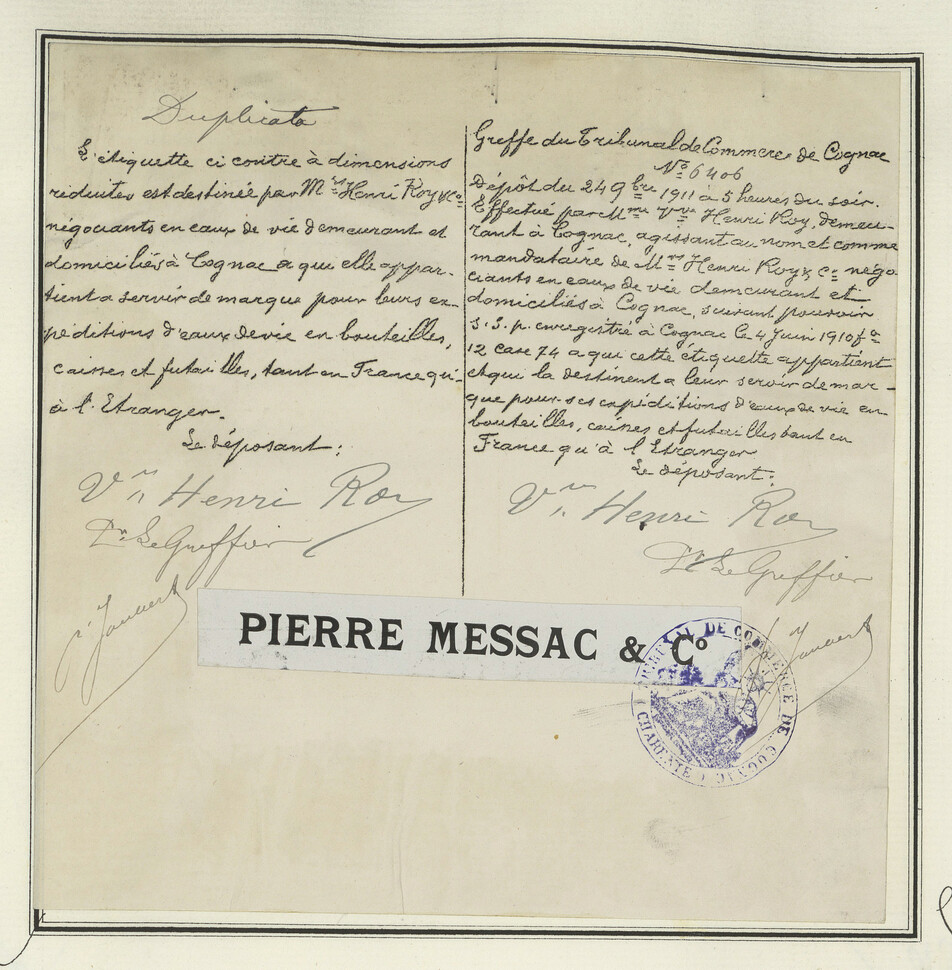 Duplicata
L'étiquette ci contre à dimensions
réduites est destinée par Mrs Henri Roy & Co
négociants en eaux de vie demeurant et
domiciliés à Cognac a qui elle appar-
tient a servir de marque pour leurs ex-
péditions d'eaux de vie en bouteilles,
caisses et futailles, tant en France qu'-
à l'Etranger.
Le déposant:
Vve Henri Roy
Pr Le Greffier
Greffe du Tribunal de Commerce de Cognac
No 6406
Dépôt du 24 9bre 1911 à 5 heures du soir.
Effectué par Mme Vve Henri Roy, demeu-
rant à Cognac, agissant au nom et comme
mandataire de Mrs Henri Roy & Co négo
ciants en eaux de vie demeurant et
domiciliés à Cognac, suivant pouvoir
s.s.p. enregistré à Cognac le 4 Juin 1910 fo
12 case 74 a qui cette étiquette appartient
et qui la destinent a leur servir de mar-
que pour ses expéditions d'eaux de vie en
bouteilles, caisses et futailles tant en
France qu'à l'Etranger
Le déposant:
Vve Henri Roy
Pr Le Greffier
PIERRE MESSAC & Co
TRIBUNAL DE COMMERCE DE COGNAC
(CHARENTE)